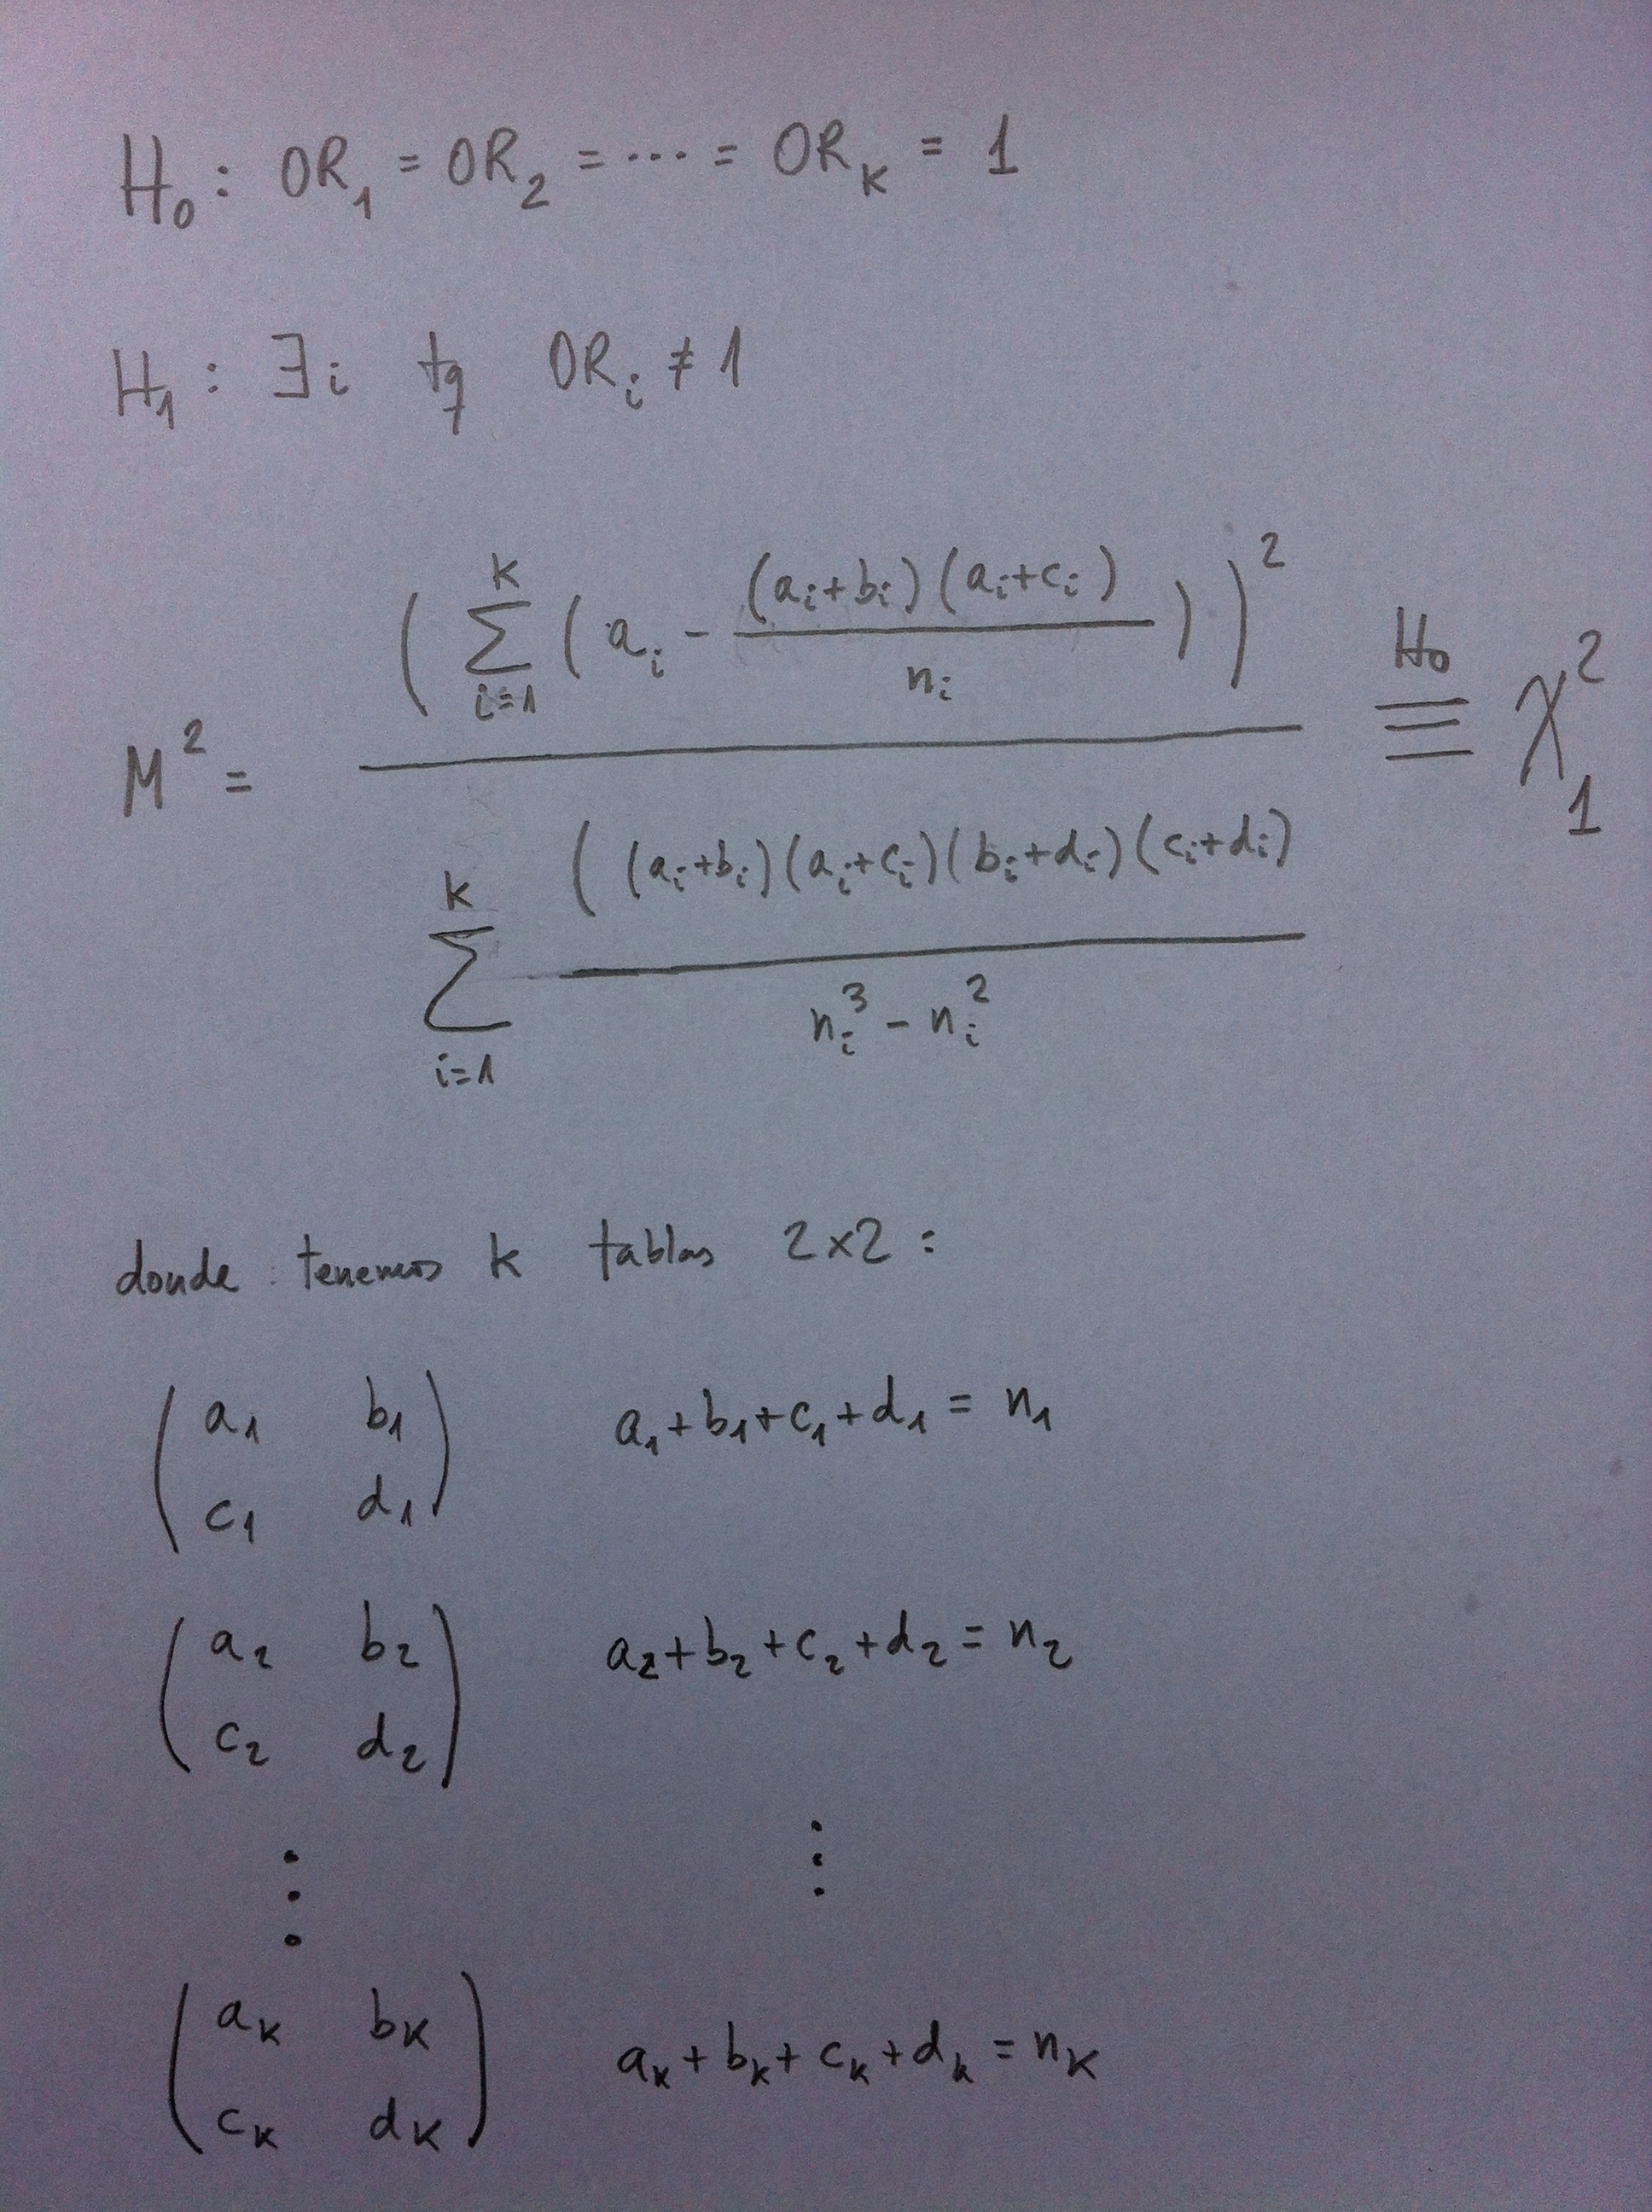 H₀: OR₁ = OR₂ = ··· = OR_K = 1
H₁: ∃i tq OR_i ≠ 1
M² = ( ∑_{i=1}^{K} ( a_i - (a_i+b_i)(a_i+c_i) / n_i ) )² / ∑_{i=1}^{K} ( (a_i+b_i)(a_i+c_i)(b_i+d_i)(c_i+d_i) / n_i³ - n_i² ≡^{H₀} χ²₁
donde tenemos k tablas 2x2:
( a₁ b₁ a₁+b₁+c₁+d₁ = n₁
c₁ d₁ )
( a₂ b₂ a₂+b₂+c₂+d₂ = n₂
c₂ d₂ )
⋮ ⋮
( a_K b_K a_K+b_K+c_K+d_K = n_K
c_K d_K )